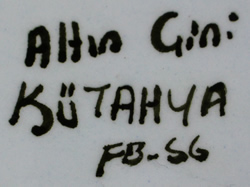 Altın Çini
KÜTAHYA
FB-SG